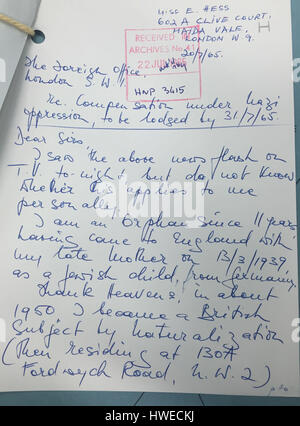 MISS E. HESS
602A CLIVE COURT,
MAIDA VALE,
LONDON W.9.
H
20/7/65.
RECEIVED IN
ARCHIVES No.41
22 JUL 1965
HNP 3615
The Foreign Office,
London S.W.1
Re. Compensation under Nazi
oppression, to be lodged by 31/7/65.
Dear Sirs
I saw the above news flash on
T.V. to-night but do not know
whether this applies to me
personally.
I am an Orphan since 11 years
having come to England with
my late mother on 13/3/1939
as a Jewish child, from Germany.
Thank Heavens, in about
1950 I became a British
Subject by naturalization
(Then residing at 130A
Fordwych Road, N.W.2)
p.t.o.
alamy
Image ID: HWECKJ
www.alamy.com